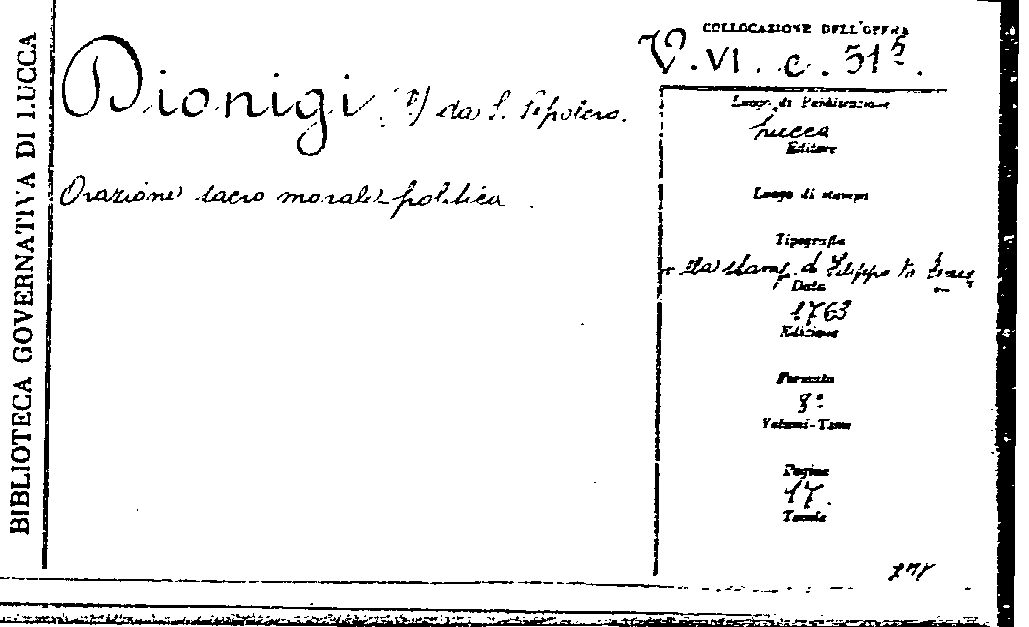 BIBLIOTECA GOVERNATIVA DI LUCCA
COLLOCAZIONE DELL'OPERA
V. VI. c. 31
Dionigi da S. Sepolcro.
Orazione sacro morale politica.
Luogo di Pubblicazione
Lucca
Editore
Luogo di stampa
Tipografia
Filippo
Data
1763
Edizione
Formato
8º
Volumi-Tomi
Pagine
17.
Tavole